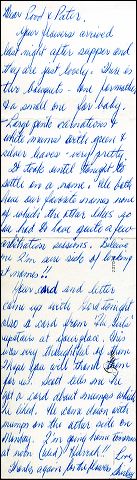 Dear Rood & Peter,
Your flowers arrived
last night after supper and
they are just lovely. There is
two bouquets - one for mother
& a small one for baby.
Large pink carnations &
white mums with green &
silver leaves - very pretty.
It took until tonight to
settle on a name. We both
had our favorite names none
of which the other liked so
you had to have quite a few
sessions. Believe
me I'm sure sick of looking
at names!!
Your card and letter
came up with tonight
also a card from
upstairs at your place. This
was very thoughtful of them.
Hope you will thank them
for us. Scott tells me he
got a card about mumps which
he liked. He came down with
mumps on the other side on
Monday. I'm going home tomorrow
at noon (Wed) Hurrah!! Love
Thanks again for the flowers Shirley